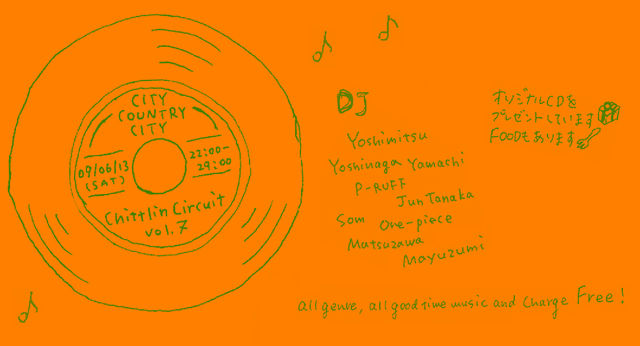 CITY
COUNTRY
CITY
09/06/13
(SAT)
22:00-
29:00
Chittlin Circuit
vol.7
DJ
Yoshimitsu
Yoshinaga Yamachi
P-RUFF
Jun Tanaka
Som One-piece
Matsuzawa
Mayuzumi
オリジナルCDを
プレゼントしています
FOODもあります
all genre, all good time music and charge Free!